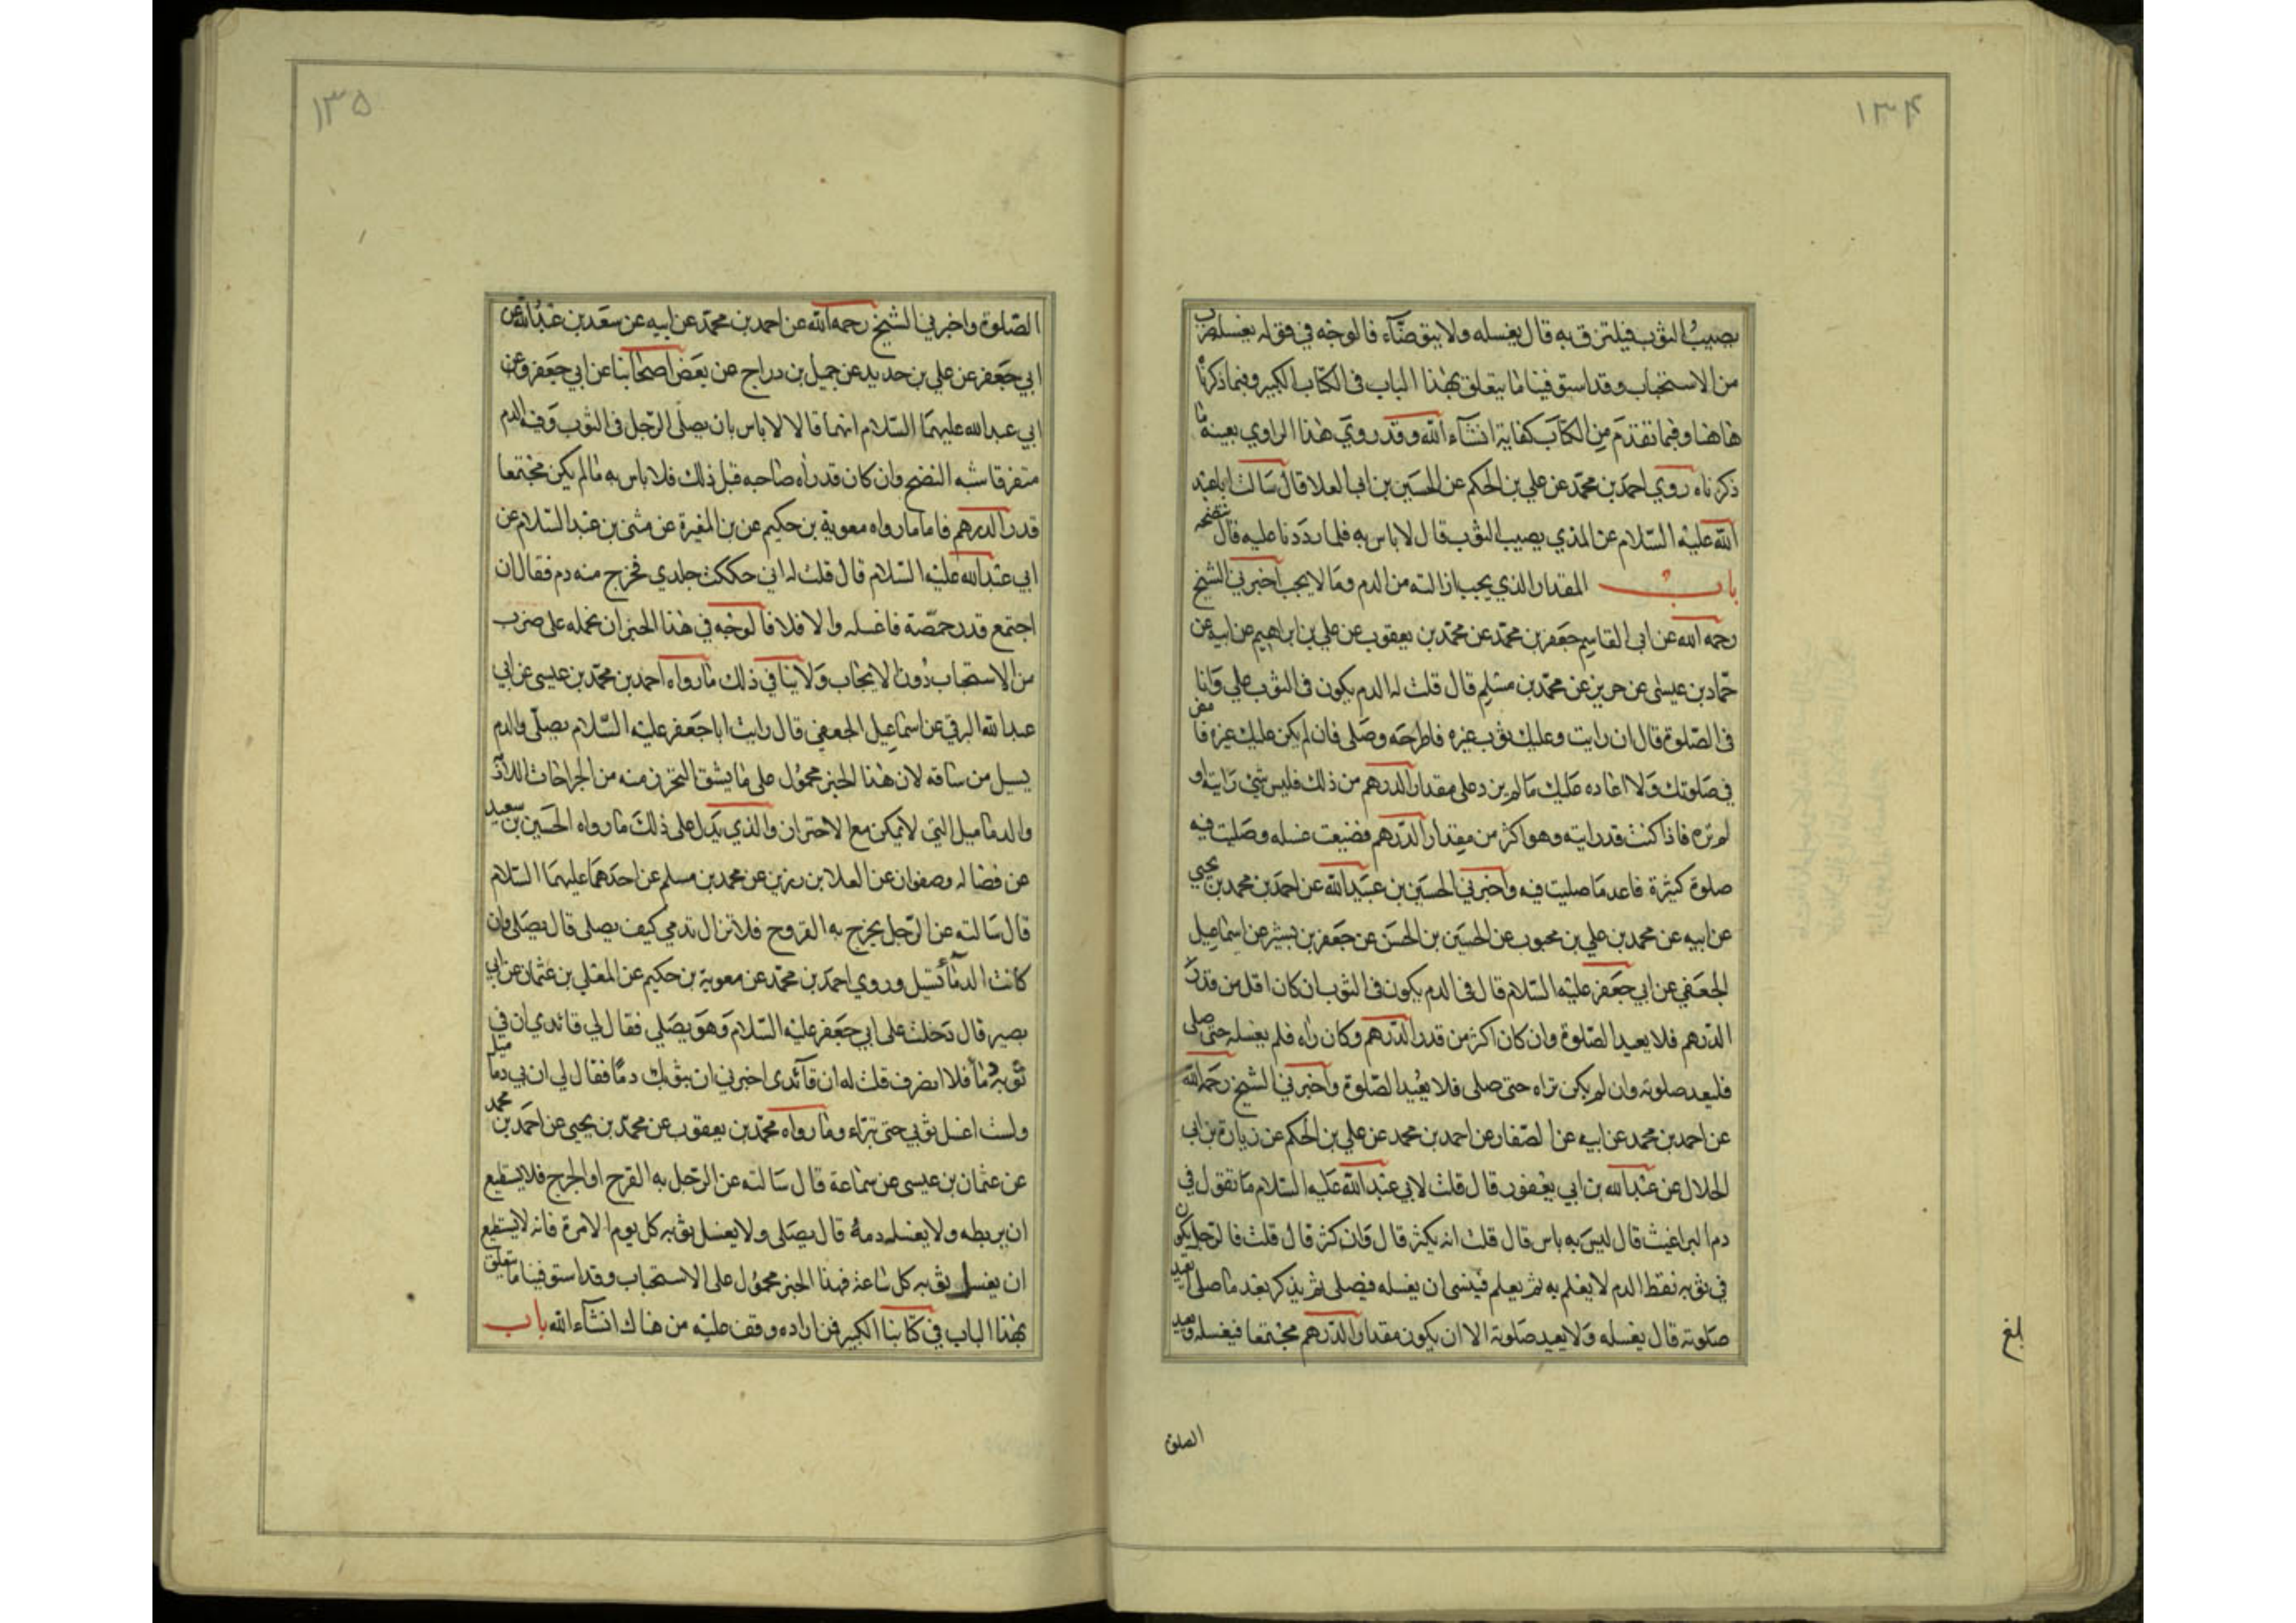 ۱۳۴
يصيب الثوب فيلتزق به قال يغسله ولا يتوضاء فالوجه في قوله يغسله ضرب
من الاستحباب وقد استوفينا ما يتعلق بهذا الباب في الكتاب الكبير وفيما ذكرناه
هاهنا وفيما تقدم من الكتاب كفاية انشاء الله وقد روي هذا الراوي بعينه ما
ذكرناه روي احمد بن محمد عن علي بن الحكم عن الحسين بن ابي العلا قال سالت ابا عبد
الله عليه السلام عن المذي يصيب الثوب قال لا باس به فلما رددنا عليه قال تنضحه
باب المقدار الذي يجب ازالته من الدم وما لا يجب اخبرني الشيخ
رحمه الله عن ابي القاسم جعفر بن محمد عن محمد بن يعقوب عن علي بن ابراهيم عن ابيه عن
حماد بن عيسى عن حريز عن محمد بن مسلم قال قلت له الدم يكون في الثوب علي وانا
في الصلوة قال ان رايت وعليك ثوب غيره فاطرحه وصلى فان لم يكن عليك غيره فامض
في صلوتك ولا اعاده عليك ما لم يزد على مقدار الدرهم من ذلك فليس شئ رايته او
لم تره فاذا كنت قد رايته وهو اكثر من مقدار الدرهم فضيعت غسله وصليت فيه
صلوة كثيرة فاعد ما صليت فيه واخبرني الحسين بن عبيد الله عن احمد بن محمد بن يحيي
عن ابيه عن محمد بن علي بن محبوب عن الحسين بن الحسن عن جعفر بن بشير عن اسماعيل
الجعفي عن ابي جعفر عليه السلام قال في الدم يكون في الثوب ان كان اقل من قدر
الدرهم فلا يعيد الصلوة وان كان اكثر من قدر الدرهم وكان راه فلم يغسله حتى صلى
فليعد صلوته وان لم يكن تراه حتى صلى فلا يعيد الصلوة واخبرني الشيخ رحمه الله
عن احمد بن محمد عن ابيه عن الصفار عن احمد بن محمد عن علي بن الحكم عن زيارة بن ابي
الحلال عن عبد الله بن ابي يعفور قال قلت لابي عبد الله عليه السلام ما تقول في
دم البراغيث قال ليس به باس قال قلت انه يكثر قال وان كثر قال قلت فالرجل يكون
في ثوبه نقط الدم لا يعلم به ثم يعلم فينسى ان يغسله فيصلى ثم يذكر بعد ما صلى ايعيد
صلوته قال يغسله ولا يعيد صلوته الا ان يكون مقدار الدرهم مجتمعا فيغسله ويعيد
الصلوة
بلغ
۱۳۵
الصلوة واخبرني الشيخ رحمه الله عن احمد بن محمد عن ابيه عن سعد بن عبد الله عن
ابي جعفر عن علي بن حديد عن جميل بن دراج عن بعض اصحابنا عن ابي جعفر وعن
ابي عبد الله عليهما السلام انهما قالا لا باس بان يصلى الرجل في الثوب وفيه الدم
متفرقا شبه النضح وان كان قد راه صاحبه قبل ذلك فلا باس به ما لم يكن مجتمعا
قدر الدرهم فاما ما رواه معوية بن حكيم عن بن المغيرة عن مثنى بن عبد السلام عن
ابي عبد الله عليه السلام قال قلت له اني حككت جلدي فخرج منه دم فقال ان
اجتمع قدر حمصة فاغسله والا فلا فالوجه في هذا الخبر ان نحمله على ضرب
من الاستحباب دون الايجاب ولا ينافي ذلك ما رواه احمد بن محمد بن عيسى عن ابي
عبد الله البرقي عن اسماعيل الجعفي قال رايت ابا جعفر عليه السلام يصلى والدم
يسيل من ساقه لان هذا الخبر محمول على ما يشق التحرز منه من الجراحات اللازمة
والدماميل التي لا يمكن مع الاحتراز والذي يدل على ذلك ما رواه الحسين بن سعيد
عن فضاله وصفوان عن العلا بن رزين عن محمد بن مسلم عن احدهما عليهما السلام
قال سالته عن الرجل يخرج به القروح فلا تزال تدمي كيف يصلى قال يصلى وان
كانت الدماء تسيل وروي احمد بن محمد عن معوية بن حكيم عن المعلي بن عثمان عن ابي
بصير قال دخلت على ابي جعفر عليه السلام وهو يصلي فقال لي قائدي ان في
ثوبه دما فلما انصرف قلت له ان قائدي اخبرني ان بثوبك دما فقال لي ان بي دماميل
ولست اغسل ثوبي حتى تبراء وما رواه محمد بن يعقوب عن محمد بن يحيى عن احمد بن محمد
عن عثمان بن عيسى عن سماعة قال سالته عن الرجل به القرح او الجرح فلا يستطيع
ان يربطه ولا يغسل دمه قال يصلى ولا يغسل ثوبه كل يوم الا مرة فانه لا يستطيع
ان يغسل ثوبه كل ساعة فهذا الخبر محمول على الاستحباب وقد استوفينا ما يتعلق
بهذا الباب في كتابنا الكبير فمن اراده وقف عليه من هناك انشاء الله باب